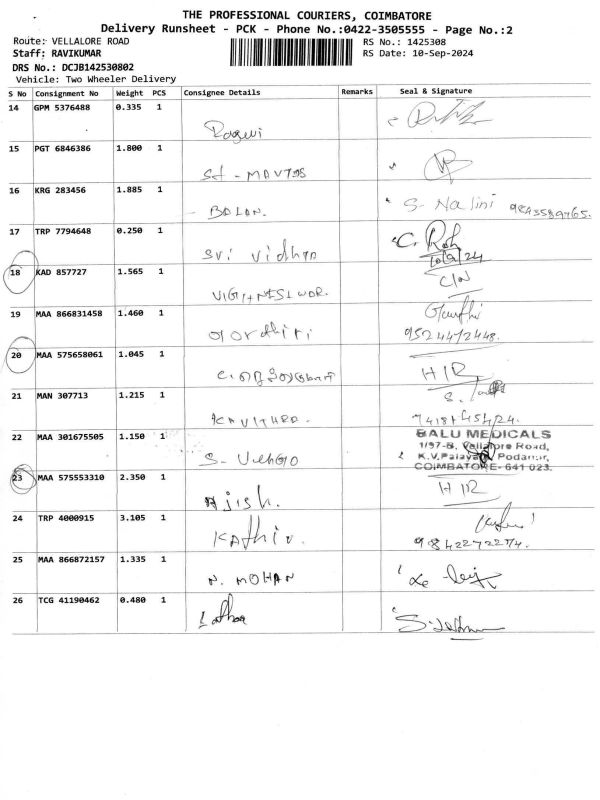 THE PROFESSIONAL COURIERS, COIMBATORE
Delivery Runsheet - PCK - Phone No.:0422-3505555 - Page No.:2
Route: VELLALORE ROAD
RS No.: 1425308
Staff: RAVIKUMAR
RS Date: 10-Sep-2024
DRS No.: DCJB142530802
Vehicle: Two Wheeler Delivery
S No Consignment No Weight PCS Consignee Details Remarks Seal & Signature
14 GPM 5376488 0.335 1
15 PGT 6846386 1.800 1
16 KRG 283456 1.885 1 BALAN. S. Nalini
17 TRP 7794648 0.250 1 Sri Vidhya C. Rah
18 KAD 857727 1.565 1 C/N
19 MAA 866831458 1.460 1 9524472448.
20 MAA 575658061 1.045 1 H/R
21 MAN 307713 1.215 1
22 MAA 301675505 1.150 1 BALU MEDICALS
1/97-B, Vellalore Road,
K.V.Palayam Podanur,
COIMBATORE- 641 023.
23 MAA 575553310 2.350 1 Ajish. H/R
24 TRP 4000915 3.105 1 Kathir.
25 MAA 866872157 1.335 1 N. MOHAN
26 TCG 41190462 0.480 1 Latha